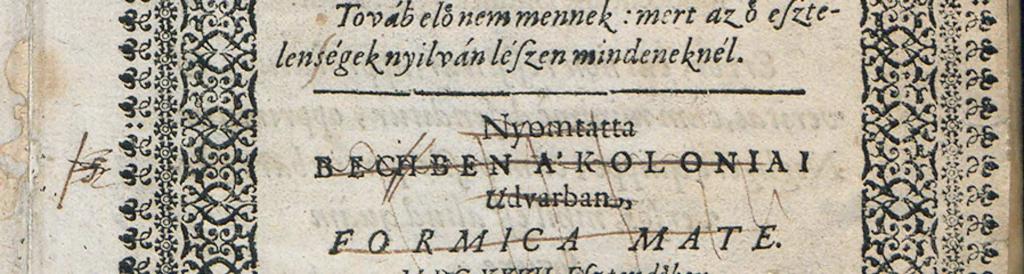 Továb elö nem mennek : mert az ö eſzte-
lenségek nyilván léſzen mindeneknél.
Nyomtatta
BECHBEN A' KOLONIAI
Udvarban,
FORMICA MATE.